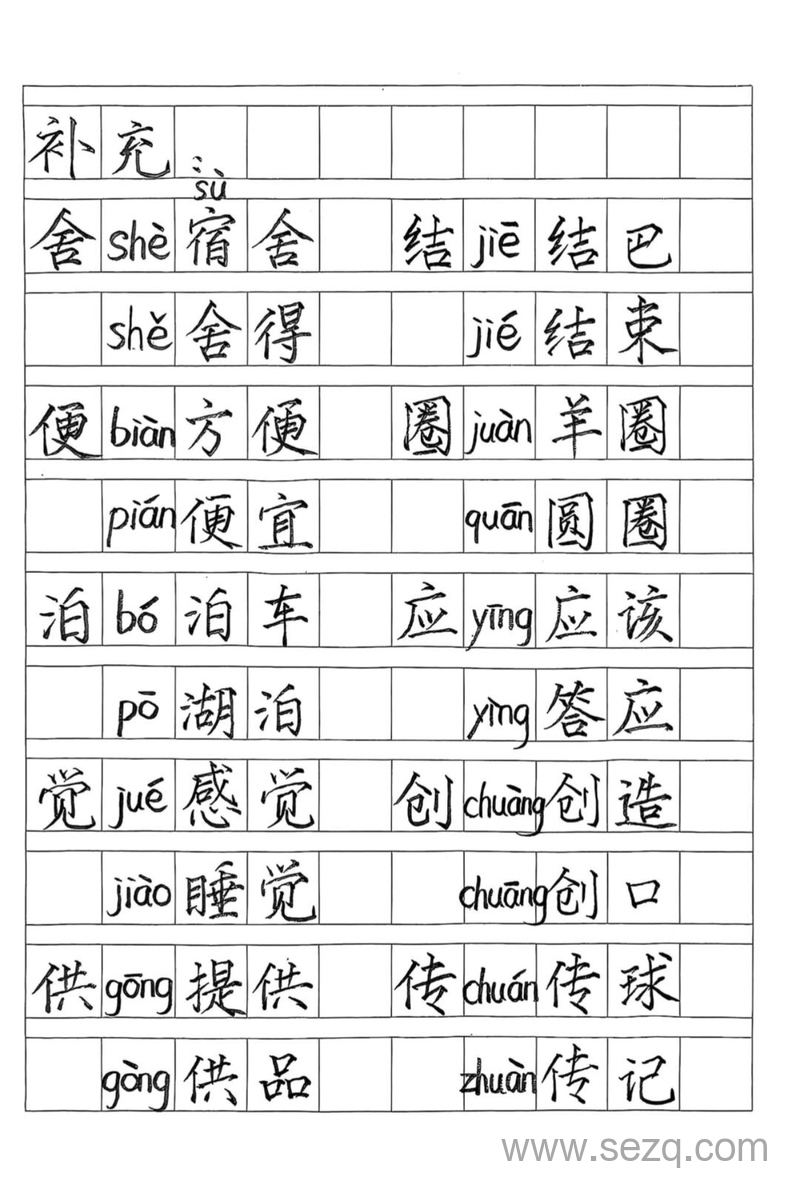 补充：
sù
舍 shè 宿舍 结 jiē 结巴
shě 舍得 jié 结束
便 biàn 方便 圈 juàn 羊圈
pián 便宜 quān 圆圈
泊 bó 泊车 应 yīng 应该
pō 湖泊 yìng 答应
觉 jué 感觉 创 chuàng 创造
jiào 睡觉 chuāng 创口
供 gōng 提供 传 chuán 传球
gòng 供品 zhuàn 传记
www.sezq.com